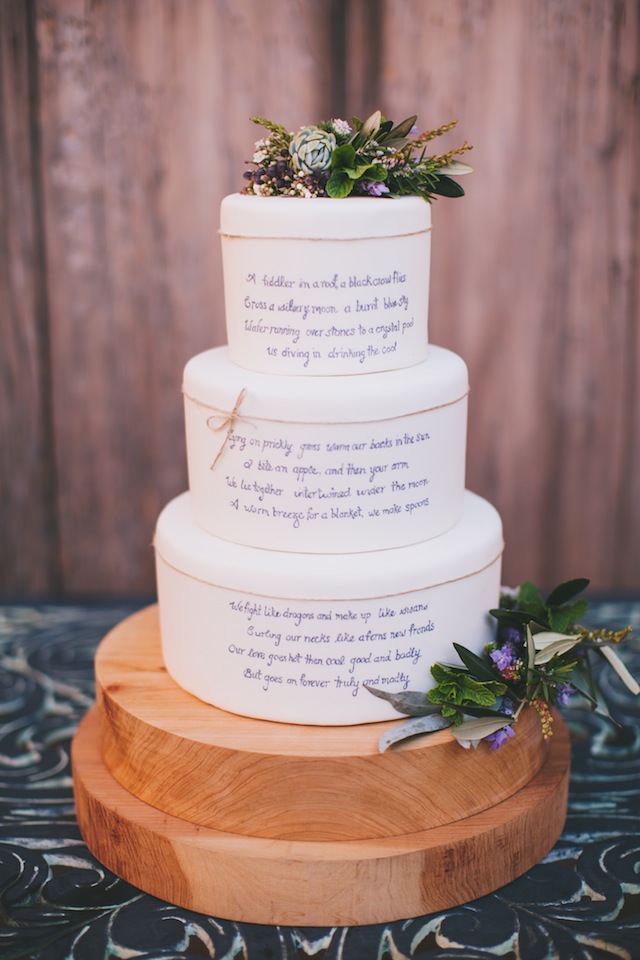 A fiddler in a roof, a black crow flies
Cross a silvery moon a burnt blue sky
Water running over stones to a crystal pool
us diving in drinking the cool
Lying on prickly grass warm our backs in the sun
I bite an apple, and then your arm
We lie together intertwined under the moon
A warm breeze for a blanket, we make spoons
We fight like dragons and make up like swans
Curling our necks like a ferns new fronds
Our love goes hot then cool good and badly
But goes on forever truly and madly